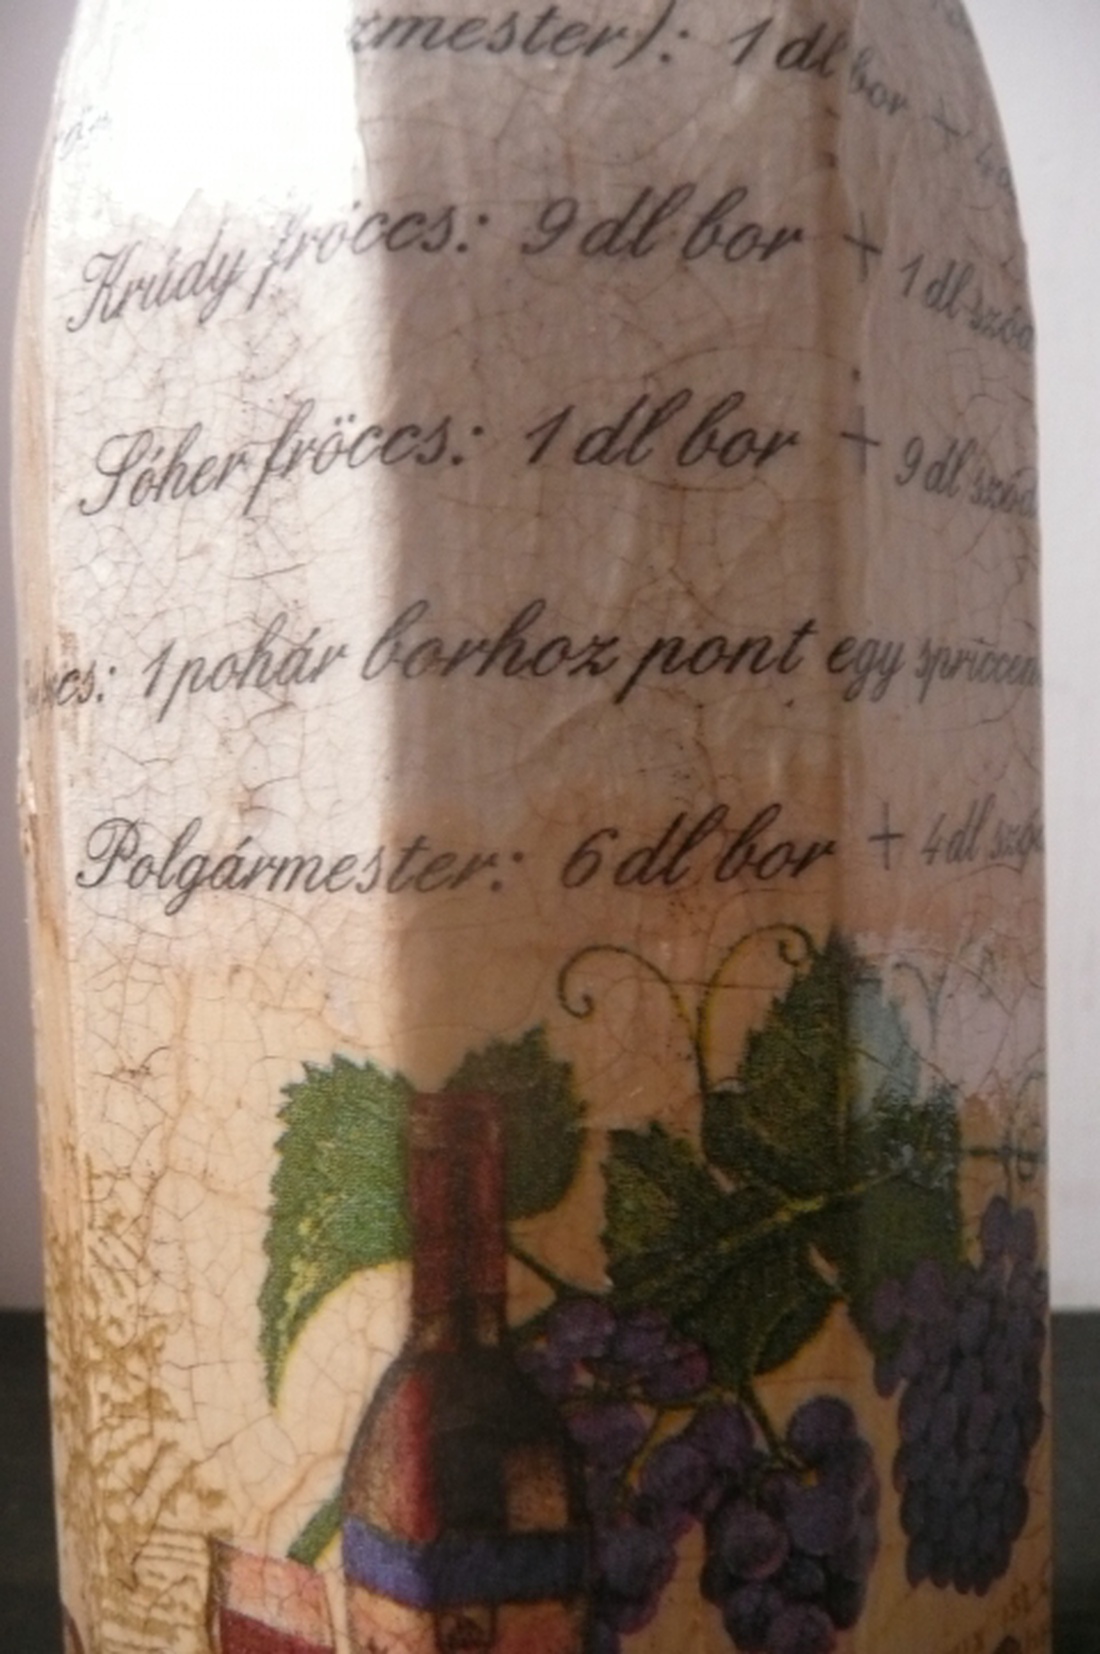 zmester): 1 dl bor +
Krúdy fröccs: 9 dl bor + 1 dl szóda
Sóher fröccs: 1 dl bor + 9 dl szóda
1 pohár borhoz pont egy
Polgármester: 6 dl bor + 4 dl